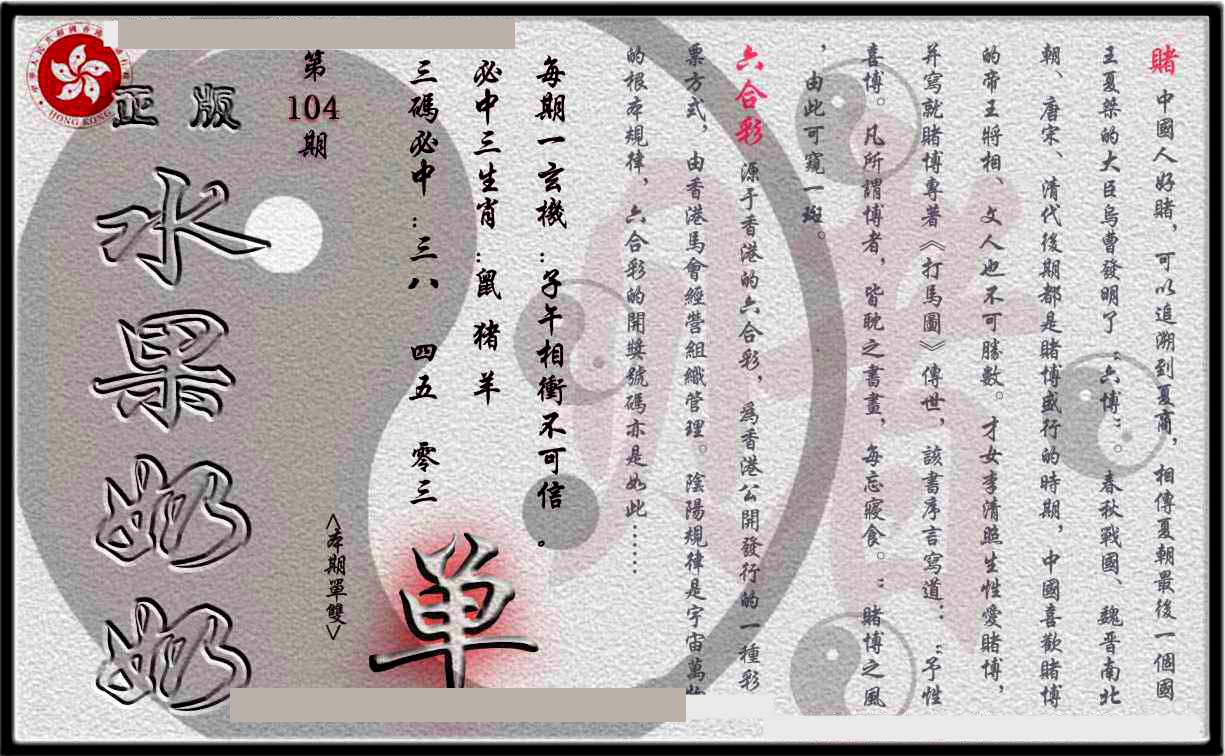 賭 中國人好賭，可以追溯到夏商，相傳夏朝最後一個國
王夏桀的大臣烏曹發明了“六博”。春秋戰國、魏晉南北
朝、唐宋、清代後期都是賭博盛行的時期，中國喜歡賭博
的帝王將相、文人也不可勝數。才女李清照生性愛賭博，
并寫就賭博專著《打馬圖》傳世，該書序言寫道：“予性
喜博。凡所謂博者，皆耽之書畫，每忘寢食。”賭博之風
，由此可窺一斑。
六合彩 源于香港的六合彩，為香港公開發行的一種彩
票方式，由香港馬會經營組織管理。陰陽規律是宇宙萬物
的根本規律，六合彩的開獎號碼亦是如此……
每期一玄機：子午相衝不可信。
必中三生肖：鼠 猪 羊
三碼必中：三八 四五 零三
單
<本期單雙>
第104期
正版
水果奶奶
HONG KONG